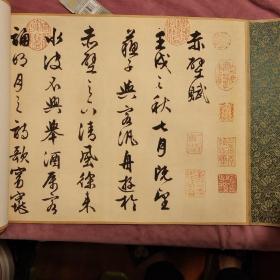 赤壁賦
壬戌之秋七月既望
蘇子與客汎舟遊於
赤壁之下清風徐來
水波不興舉酒屬客
誦明月之詩歌窈窕